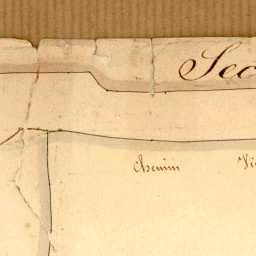 Sec
Chemin Vi